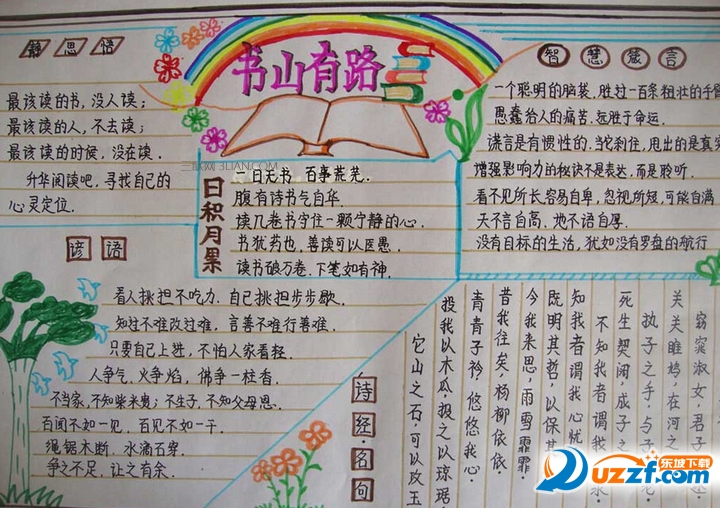 静思语
最该读的书,没人读;
最该读的人,不去读;
最该读的时候,没在读.
升华阅读吧,寻找自己的
心灵定位.
书山有路
三联网 3LIAN.COM
日积月累
一日无书 百事荒芜.
腹有诗书气自华.
读几卷书守住一颗宁静的心.
书犹药也,善读可以医愚
读书破万卷.下笔如有神.
智慧箴言
一个聪明的脑袋.胜过一百条粗壮的手臂
愚蠢给人的痛苦.短胜于命运.
谎言是有惯性的.当它刹住,甩出的是真实
增强影响力的秘诀不是表达,而是聆听.
看不见所长容易自卑,忽视所短,可能自满
天不言自高、地不语自厚.
没有目标的生活,犹如没有罗盘的航行
谚语
看人挑担不吃力.自己挑担步步歇.
知过不难改过难,言善不难行善难.
只要自己上进,不怕人家看轻.
人争气.火争焰,佛争一柱香.
不当家,不知柴米贵;不生子,不知父母恩.
百闻不如一见,百见不如一干.
绳锯木断,水滴石穿.
争之不足,让之有余.
诗经·名句
窈窕淑女,君子
关关雎鸠,在河之
执子之手,与子
死生契阔,成子之
不知我者谓我
知我者谓我心忧
既明其哲,以保其
今我来思,雨雪霏霏
昔我往矣,杨柳依依.
青青子衿,悠悠我心.
投我以木瓜,报之以琼琚
它山之石,可以攻玉
uzzf.com
东坡下载